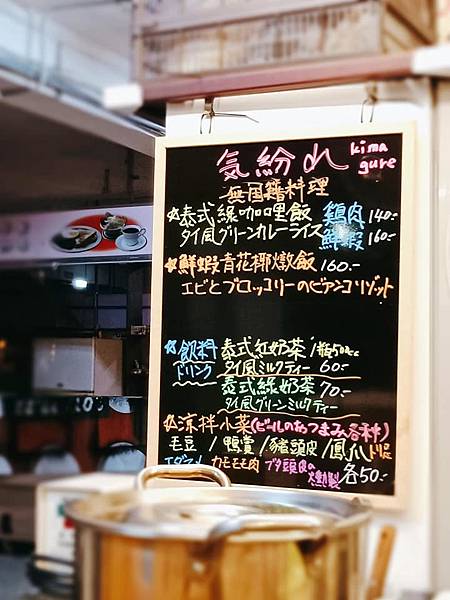 気紛れ kima
gure
無国籍料理
☆泰式綠咖哩飯 鶏肉 140.-
タイ風グリーンカレーライス 鮮蝦 160.-
☆鮮蝦青花椰燉飯 160.-
エビとブロッコリーのビアンコリゾット
☆飲料 泰式紅奶茶
ドリンク タイ風ミルクティー 60.-
泰式綠奶茶 70.-
タイ風グリーンミルクティー
☆涼拌小菜(ビールのおつまみ各種)
毛豆 /鴨賞 /豬頭皮 /鳳爪
エダマメ カモモモ肉 ブタ頭皮の
燻製 各50.-